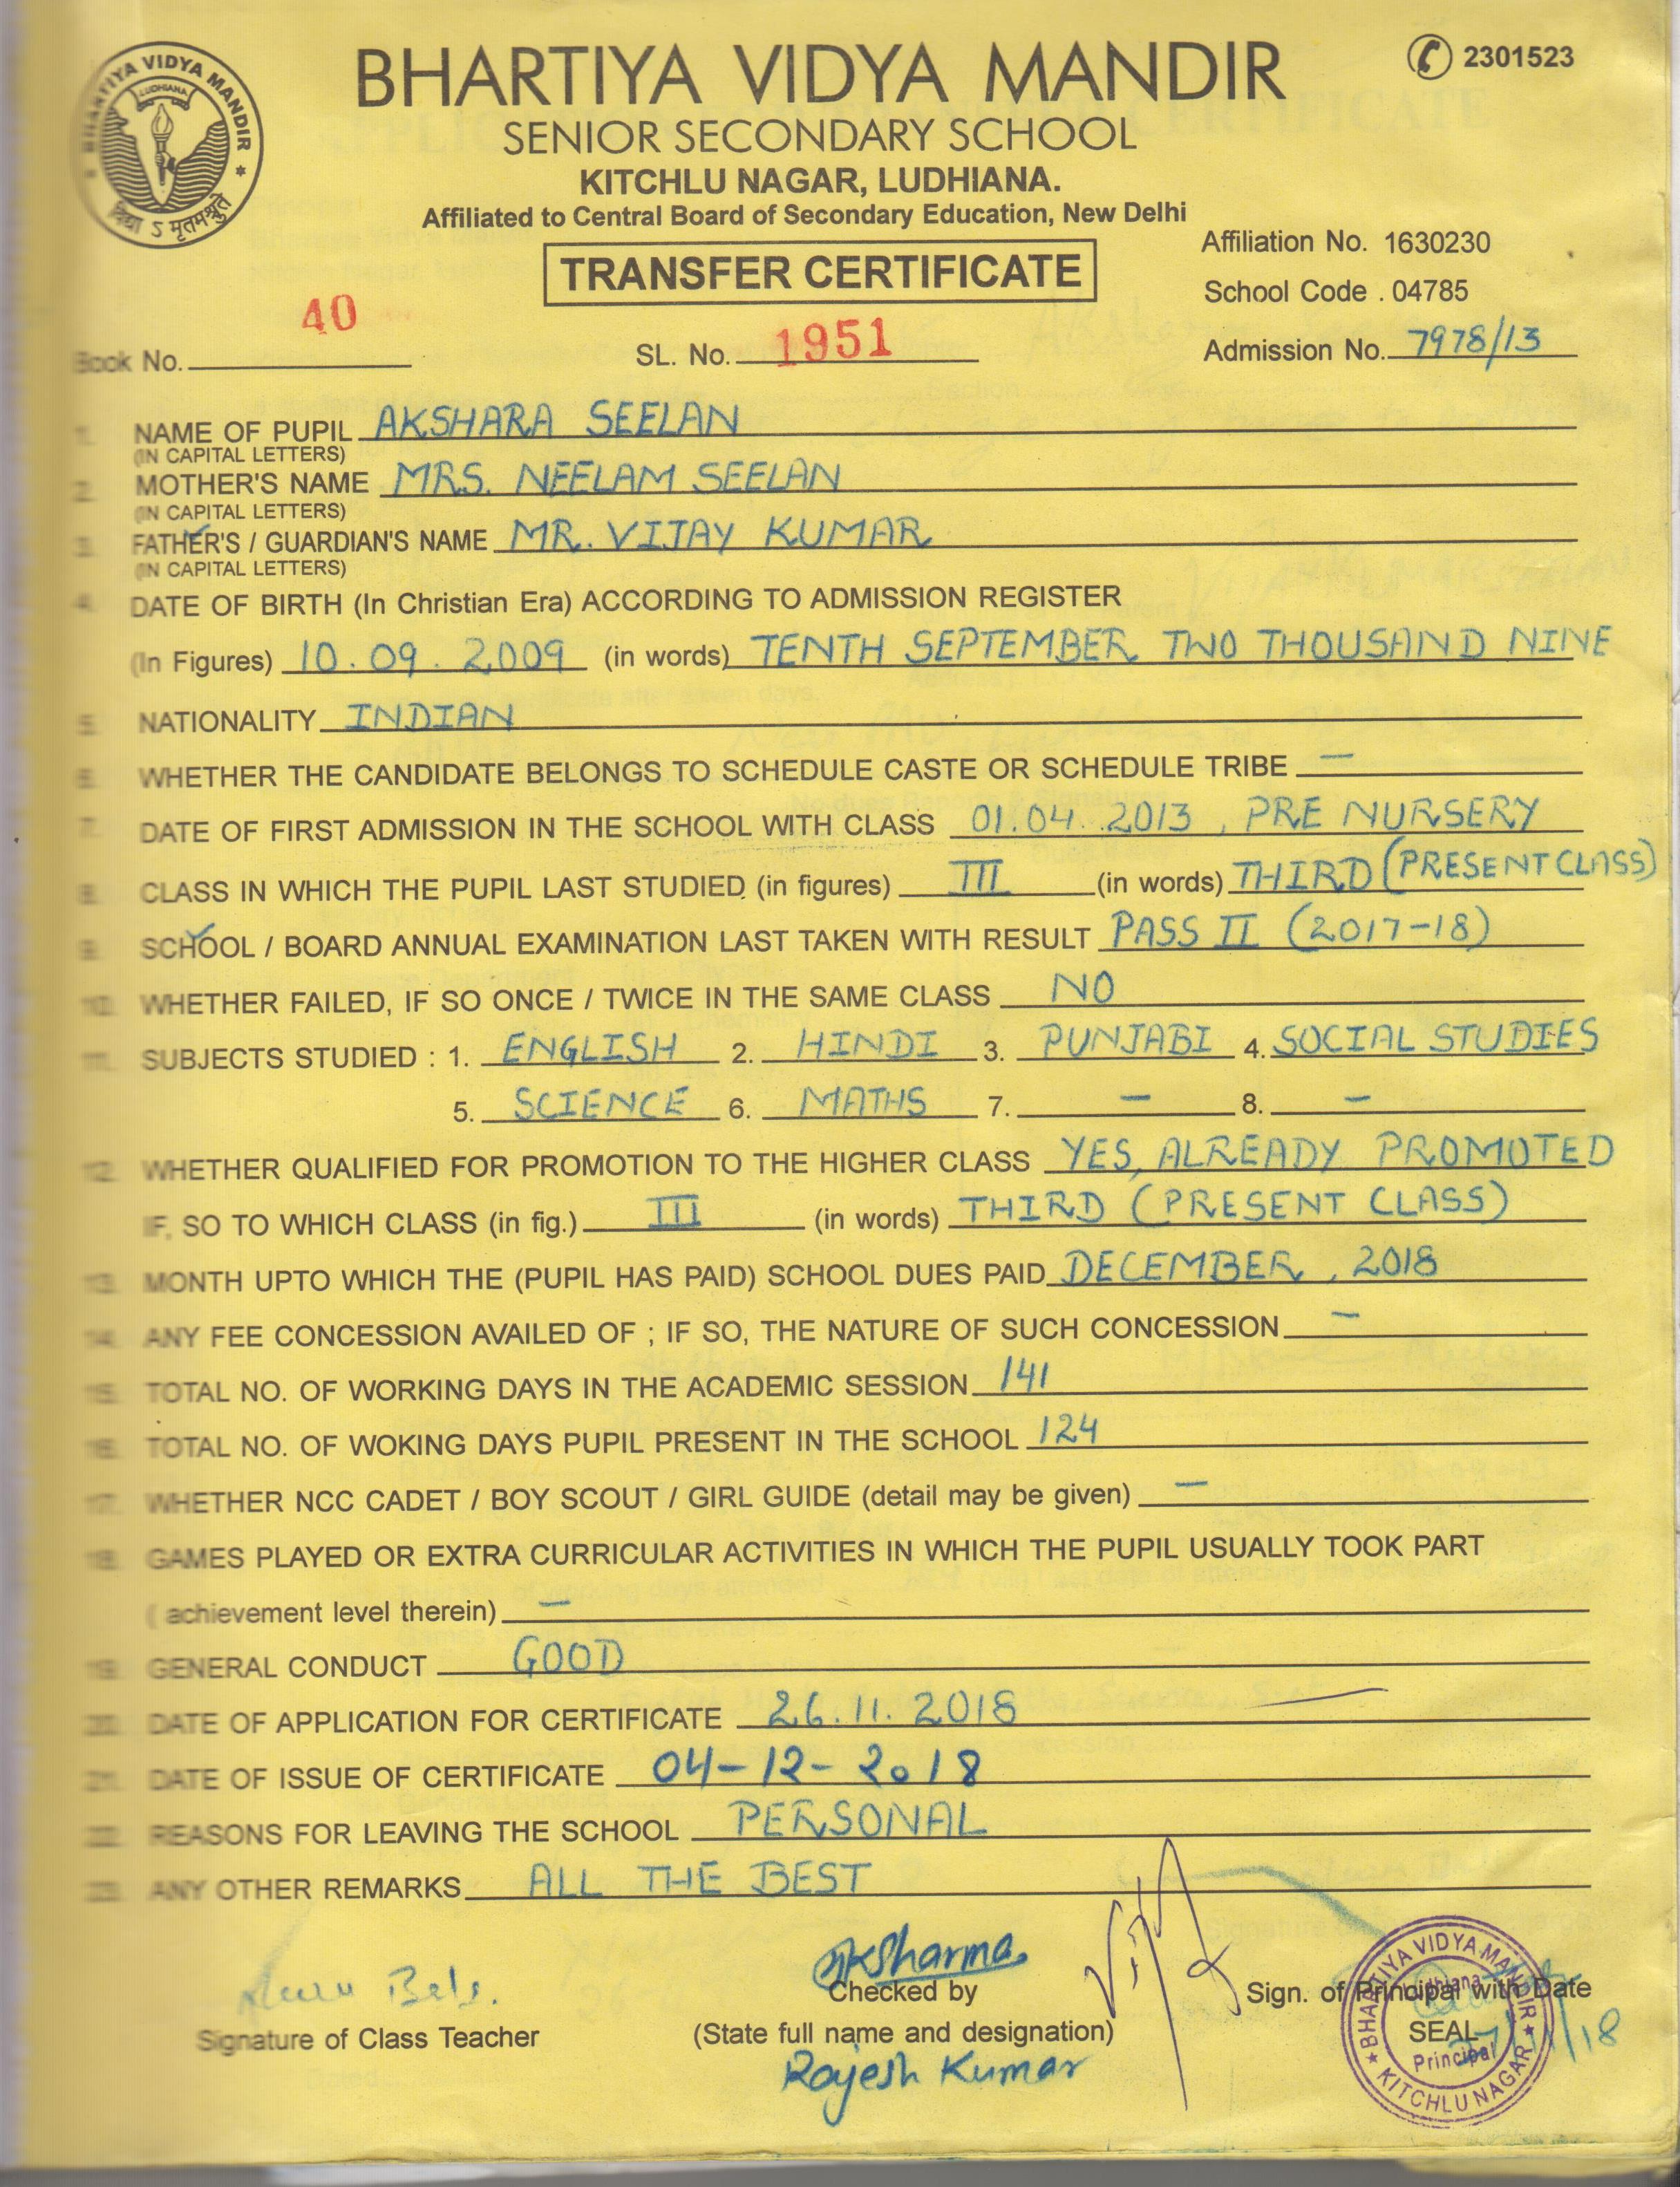 BHARTIYA VIDYA MANDIR
LUDHIANA
विद्या ऽ मृतमश्नुते
BHARTIYA VIDYA MANDIR
2301523
SENIOR SECONDARY SCHOOL
KITCHLU NAGAR, LUDHIANA.
Affiliated to Central Board of Secondary Education, New Delhi
Affiliation No. 1630230
TRANSFER CERTIFICATE
School Code . 04785
Book No. 40 SL. No. 1951 Admission No. 7978/13
1. NAME OF PUPIL AKSHARA SEELAN
(IN CAPITAL LETTERS)
2. MOTHER'S NAME MRS. NEELAM SEELAN
(IN CAPITAL LETTERS)
3. FATHER'S / GUARDIAN'S NAME MR. VIJAY KUMAR
(IN CAPITAL LETTERS)
4. DATE OF BIRTH (In Christian Era) ACCORDING TO ADMISSION REGISTER
(In Figures) 10.09.2009 (in words) TENTH SEPTEMBER TWO THOUSAND NINE
5. NATIONALITY INDIAN
6. WHETHER THE CANDIDATE BELONGS TO SCHEDULE CASTE OR SCHEDULE TRIBE —
7. DATE OF FIRST ADMISSION IN THE SCHOOL WITH CLASS 01.04.2013, PRE NURSERY
8. CLASS IN WHICH THE PUPIL LAST STUDIED (in figures) III (in words) THIRD (PRESENT CLASS)
9. SCHOOL / BOARD ANNUAL EXAMINATION LAST TAKEN WITH RESULT PASS II (2017-18)
10. WHETHER FAILED, IF SO ONCE / TWICE IN THE SAME CLASS NO
11. SUBJECTS STUDIED : 1. ENGLISH 2. HINDI 3. PUNJABI 4. SOCIAL STUDIES
5. SCIENCE 6. MATHS 7. — 8. —
12. WHETHER QUALIFIED FOR PROMOTION TO THE HIGHER CLASS YES, ALREADY PROMOTED
IF, SO TO WHICH CLASS (in fig.) III (in words) THIRD (PRESENT CLASS)
13. MONTH UPTO WHICH THE (PUPIL HAS PAID) SCHOOL DUES PAID DECEMBER, 2018
14. ANY FEE CONCESSION AVAILED OF ; IF SO, THE NATURE OF SUCH CONCESSION —
15. TOTAL NO. OF WORKING DAYS IN THE ACADEMIC SESSION 141
16. TOTAL NO. OF WOKING DAYS PUPIL PRESENT IN THE SCHOOL 124
17. WHETHER NCC CADET / BOY SCOUT / GIRL GUIDE (detail may be given) —
18. GAMES PLAYED OR EXTRA CURRICULAR ACTIVITIES IN WHICH THE PUPIL USUALLY TOOK PART
( achievement level therein) —
19. GENERAL CONDUCT GOOD
20. DATE OF APPLICATION FOR CERTIFICATE 26.11.2018
21. DATE OF ISSUE OF CERTIFICATE 04-12-2018
22. REASONS FOR LEAVING THE SCHOOL PERSONAL
23. ANY OTHER REMARKS ALL THE BEST
Sharma
Checked by
Sign. of Principal with Date
Signature of Class Teacher
(State full name and designation)
SEAL
Rajesh Kumar
BHARTIYA VIDYA MANDIR
Ludhiana
Principal
KITCHLU NAGAR